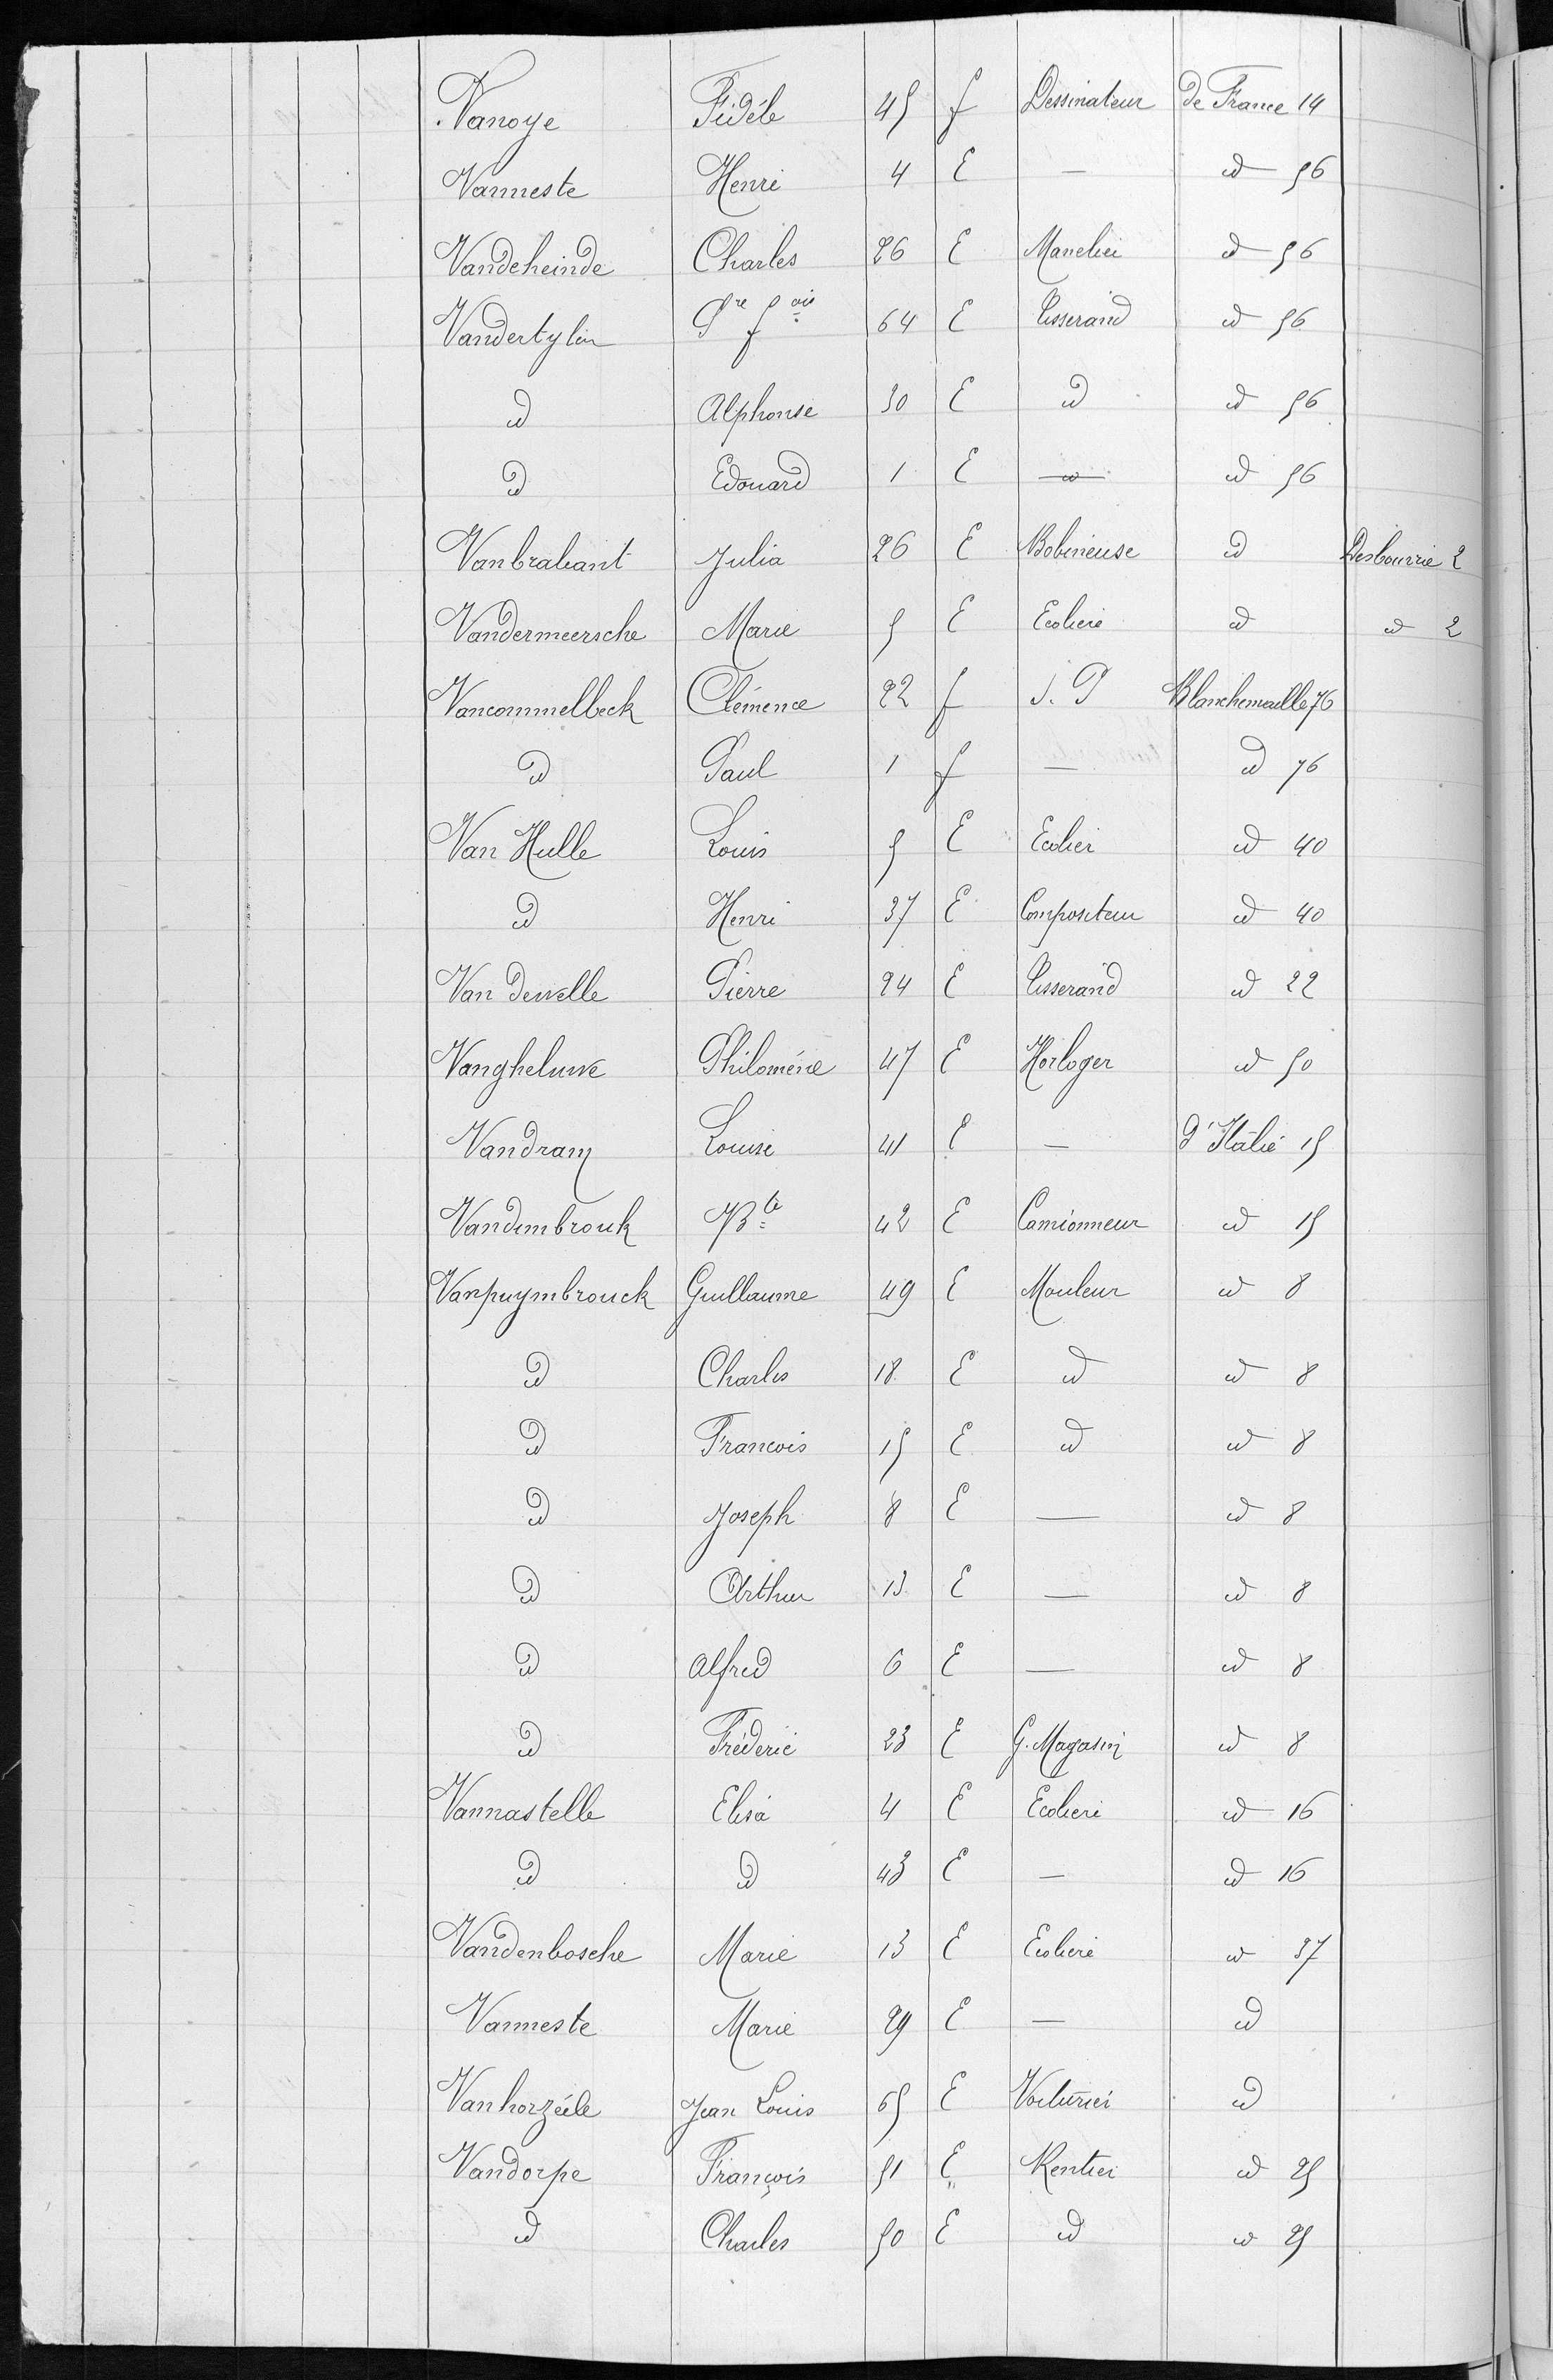 Vanoye Fidéle 45 f Dessinateur de France 14
Vanneste Henri 4 E — id 56
Vandeheinde Charles 26 E id 56
Vandertylen Pre fois 64 E Tisserand id 56
id Alphonse 30 E id id 56
id Edouard 1 E — id 56
Vanbrabant Julia 26 E Bobineuse id Desbourrie 2
Vandermeersche Marie 5 E Ecoliere id id 2
Vancommelbeck Clémence 22 f S. P Blanchemaille 76
id Paul 1 f — id 76
Van Hulle Louis 5 E Ecolier id 40
id Henri 37 E Compositeur id 40
Van Dewelle Pierre 24 E Tisserand id 22
Vangheluwe Philoméne 47 E Horloger id 50
Vandram Louise 41 E — d'Italie 15
Vandembrouk Bte 42 E Camionneur id 15
Vanpuymbrouck Guillaume 49 E Mouleur id 8
id Charles 18 E id id 8
id Francois 15 E id id 8
id Joseph 8 E — id 8
id Arthur 13 E — id 8
id Alfred 6 E — id 8
id Fréderic 23 E G. Magasin id 8
Vannastelle Elisa 4 E Ecoliere id 16
id id 43 E — id 16
Vandenbosche Marie 13 E Ecoliere id 37
Vanneste Marie 29 E — id
Vanhorzéele Jean Louis 65 E Voiturier id
Vandorpe François 51 E Rentier id 25
id Charles 50 E id id 25